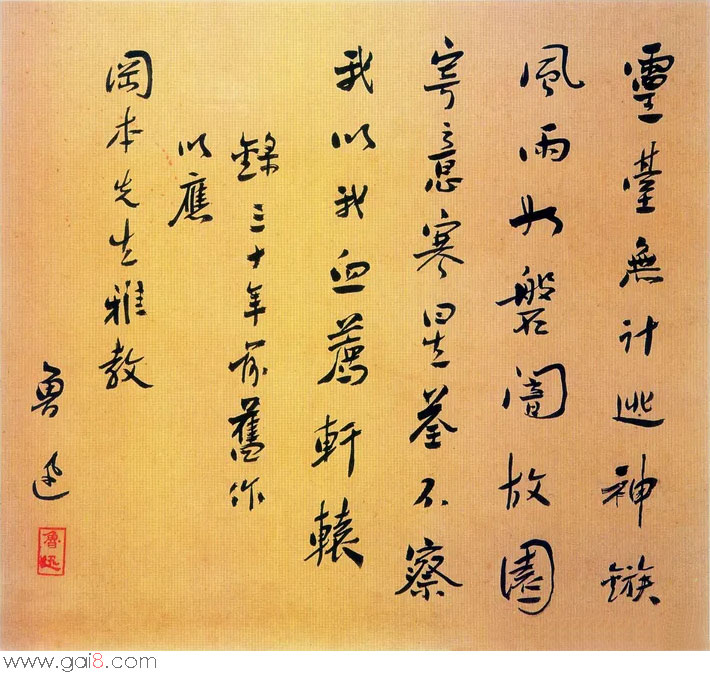 靈臺無計逃神鏃
風雨如磐闇故園
寄意寒星荃不察
我以我血薦軒轅
錄三十年前舊作
以應
岡本先生雅教
魯迅
魯迅
www.gai8.com